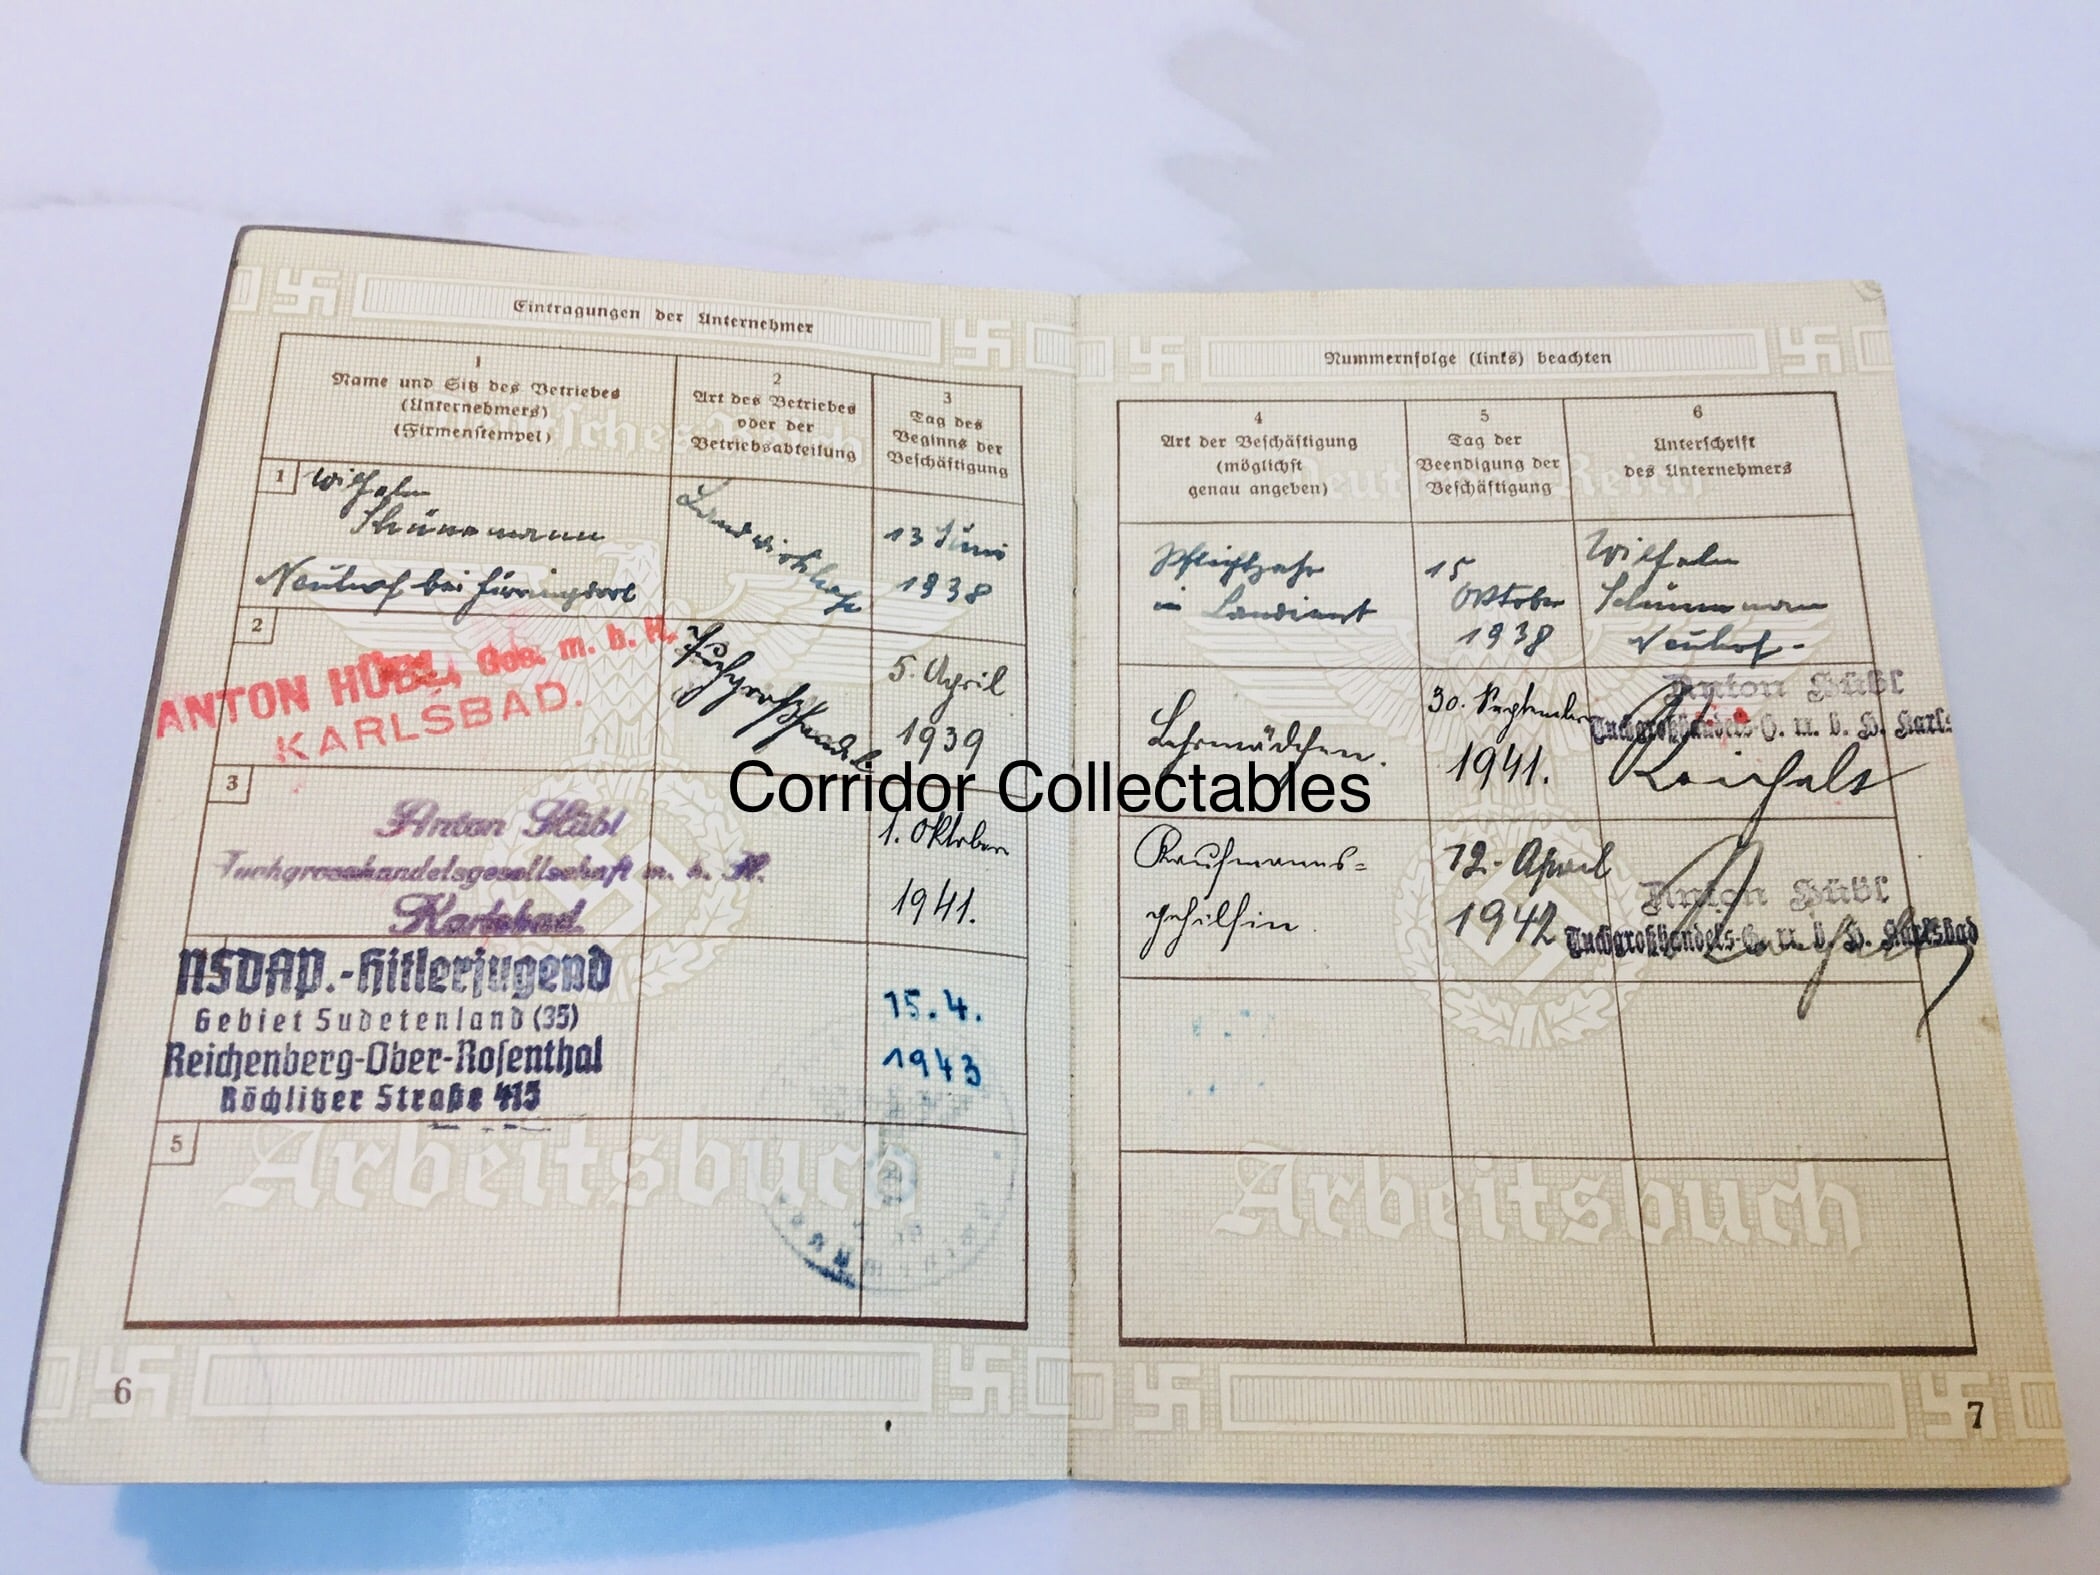 Eintragungen der Unternehmer
1
Name und Sitz des Betriebes
(Unternehmers)
(Firmenstempel)
2
Art des Betriebes
oder der
Betriebsabteilung
3
Tag des
Beginns der
Beschäftigung
1
Wilhelm
Schünemann
Neuhof bei
Landwirtschaft
13 Juni
1938
2
ANTON HÜBL, Ges. m. b. H.
KARLSBAD.
Tuchgroßhandel
5. April
1939
3
Anton Hübl
Tuchgrosshandelsgesellschaft m. b. H.
Karlsbad
1. Oktober
1941.
NSDAP.-Hitlerjugend
Gebiet Sudetenland (35)
Reichenberg-Ober-Rosenthal
Röchlitzer Straße 415
15.4.
1943
5
Deutsches Reich
Arbeitsbuch
6
Nummernfolge (links) beachten
4
Art der Beschäftigung
(möglichst
genau angeben)
5
Tag der
Beendigung der
Beschäftigung
6
Unterschrift
des Unternehmers
Pflichtjahr
in
15
Oktober
1938
Wilhelm
Schünemann
Neuhof.
Lehrmädchen.
30. September
1941.
Anton Hübl
Tuchgroßhandels-G. m. b. H. Karls
Kaufmanns-
gehilfin.
12. April
1942
Anton Hübl
Tuchgroßhandels-G. m. b. H. Karlsbad
Deutsches Reich
Arbeitsbuch
7
Corridor Collectables